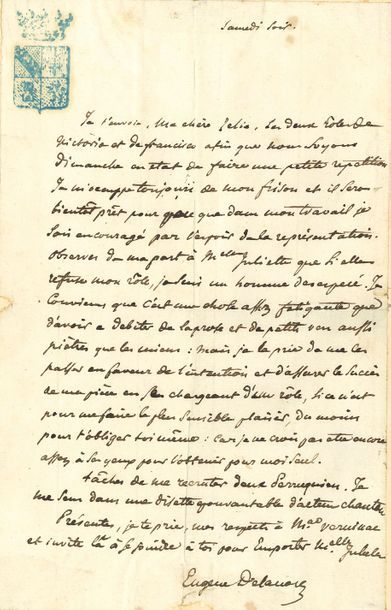 Samedi soir.
Je t'envoie, ma chère Zélie, les deux rôles de
Victoria et de francisco afin que nous soyons
dimanche en état de faire une petite repetition
Je m'occupe toujours de mon frison et il sera
bientôt prêt pour que dans mon travail je
sois encouragé par l'espoir de la représentation.
Observes de ma part à Melle Juliette que si elle
refuse mon rôle, je suis un homme desesperé. Je
conviens que c'est une chose assez fatigante que
d'avoir a debiter de la prose et de petits vers aussi
piètres que les miens : mais je la prie de me les
passer en faveur de l'intention et d'assurer le succès
de ma pièce en se chargeant d'un rôle, si ce n'est
pour me faire le plus sensible plaisir, du moins
pour t'obliger toi même : car je ne crois pas être encore
assez à ses yeux pour l'obtenir pour moi seul.
tâches de me recruter deux Perruquiers. Je
me sens dans une disette épouvantable d'acteurs chantan
Présentes, je te prie, mes respects à Me Verninac
et invite la à se joindre à toi pour emporter Melle Juliette
Eugene Delacroix